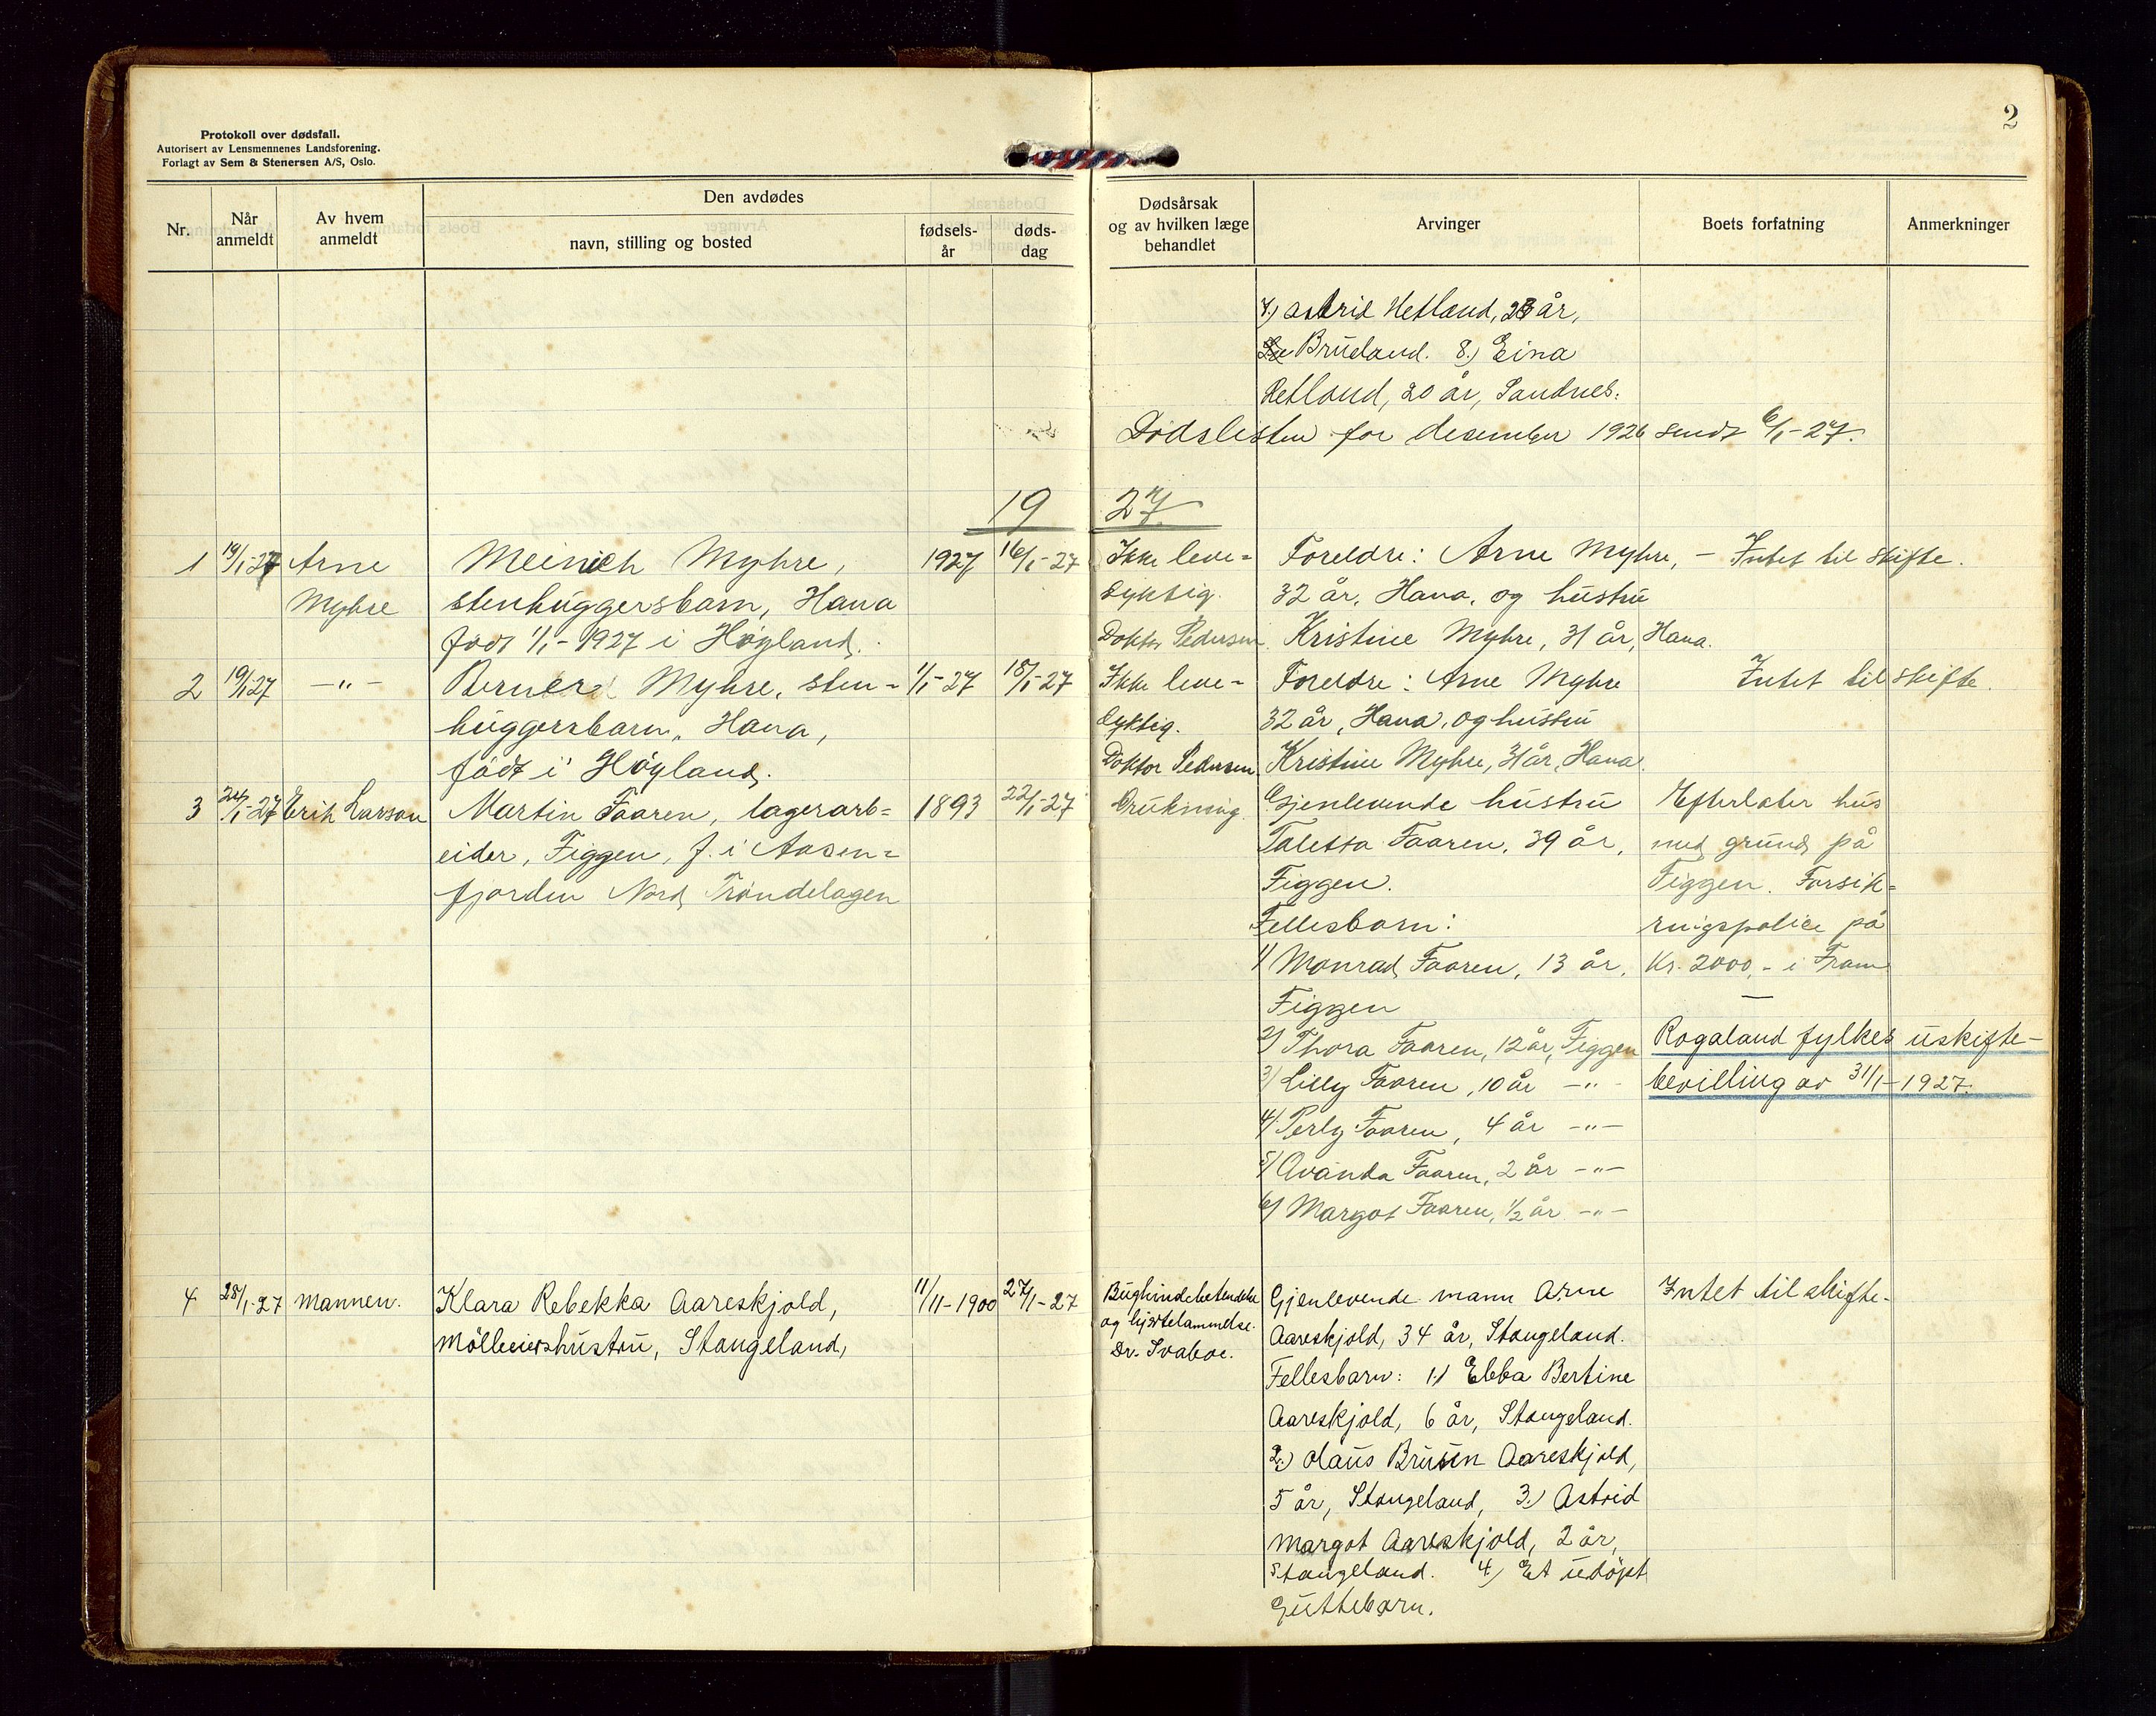 Protokoll over dødsfall.
Autorisert av Lensmennenes Landsforening.
Forlagt av Sem & Stenersen A/S, Oslo.
2
Nr.
Når anmeldt
Av hvem anmeldt
Den avdødes
navn, stilling og bosted
fødsels-år
døds-dag
Dødsårsak og av hvilken læge behandlet
Arvinger
Boets forfatning
Anmerkninger
7) Astrid Hetland, 23 år,
Brueland. 8.) Eina
Hetland, 20 år, Sandnes.
Dødslisten for desember 1926 sendt 6/1-27.
19 27
1 19/1-27 Arne Meinich Myhre, 1927 16/1-27 Ikke leve= Foreldre: Arne Myhre, - Intet til skifte.
Myhre stenhuggersbarn, Hana dyktig. 32 år, Hana, og hustru
født 1/1-1927 i Høyland. Doktor Pedersen. Kristine Myhre, 31 år, Hana.
2 19/1-27 -"- Bernerd Myhre, sten- 1/1-27 18/1-27 Ikke leve- Foreldre: Arne Myhre Intet til skifte.
huggersbarn, Hana, dyktig. 32 år, Hana, og hustru
født i Høyland. Doktor Pedersen Kristine Myhre, 31 år, Hana.
3 24/1-27 Erik Larson Martin Faaren, lagerarb= 1893 22/1-27 Drukning. Gjenlevende hustru Efterlater hus
eider, Figgen, f. i Aasen= Taletta Faaren, 39 år, med grund på
fjorden Nord Trøndelagen Figgen. Figgen. Forsik=
Fellesbarn: ringspolice på
1) Monrad Faaren, 13 år, Kr. 2000,- i Fram
Figgen
2) Thora Faaren, 12 år, Figgen Rogaland fylkes uskifte-
3) Lilly Faaren, 10 år -"- bevilling av 31/1-1927.
4) Perly Faaren, 4 år -"-
5) Avanda Faaren, 2 år -"-
6) Margot Faaren, 1/2 år -"-
4 28/1-27 Mannen. Klara Rebekka Aareskjold, 11/11-1900 27/1-27 Bughindebetendelse Gjenlevende mann Arne Intet til skifte.
Møllereiershustru, Stangeland, og hjertelammelse. Aareskjold, 34 år, Stangeland.
Dr. Svaboe. Fellesbarn: 1.) Ebba Bertine
Aareskjold, 6 år, Stangeland.
2.) Olaus Brusen Aareskjold,
5 år, Stangeland, 3.) Astrid
Margot Aareskjold, 2 år,
Stangeland. 4) Et udøpt
Guttebarn.